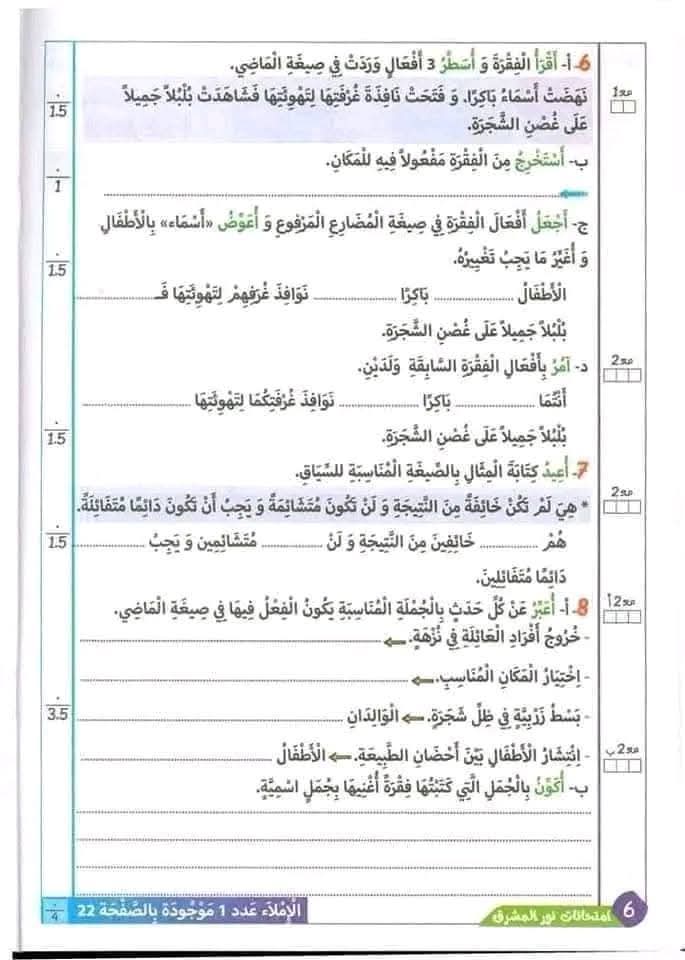 6- أ- أَقْرَأُ الْفِقْرَةَ وَ أُسَطِّرُ 3 أَفْعَالٍ وَرَدَتْ فِي صِيغَةِ الْمَاضِي.
مع1
نَهَضَتْ أَسْمَاءُ بَاكِرًا. وَ فَتَحَتْ نَافِذَةَ غُرْفَتِهَا لِتَهْوِئَتِهَا فَشَاهَدَتْ بُلْبُلاً جَمِيلاً
1.5
عَلَى غُصْنِ الشَّجَرَةِ.
ب- أَسْتَخْرِجُ مِنَ الْفِقْرَةِ مَفْعُولاً فِيهِ لِلْمَكَانِ.
1
ج- أَجْعَلُ أَفْعَالَ الْفِقْرَةِ فِي صِيغَةِ الْمُضَارِعِ الْمَرْفُوعِ وَ أُعَوِّضُ «أَسْمَاء» بِالْأَطْفَالِ
وَ أُغَيِّرُ مَا يَجِبُ تَغْيِيرُهُ.
1.5
الْأَطْفَالُ ............ بَاكِرًا ............ نَوَافِذَ غُرَفِهِمْ لِتَهْوِئَتِهَا فَـ ............
بُلْبُلاً جَمِيلاً عَلَى غُصْنِ الشَّجَرَةِ.
مع2
د- آمُرُ بِأَفْعَالِ الْفِقْرَةِ السَّابِقَةِ وَلَدَيْنِ.
أَنْتُمَا ............ بَاكِرًا ............ نَوَافِذَ غُرْفَتِكُمَا لِتَهْوِئَتِهَا ............
1.5
بُلْبُلاً جَمِيلاً عَلَى غُصْنِ الشَّجَرَةِ.
7- أُعِيدُ كِتَابَةَ الْمِثَالِ بِالصِّيغَةِ الْمُنَاسِبَةِ للسِّيَاقِ.
مع2
* هِيَ لَمْ تَكُنْ خَائِفَةً مِنَ النَّتِيجَةِ وَ لَنْ تَكُونَ مُتَشَائِمَةً وَ يَجِبُ أَنْ تَكُونَ دَائِمًا مُتَفَائِلَةً.
1.5
هُمْ ............ خَائِفِينَ مِنَ النَّتِيجَةِ وَ لَنْ ............ مُتَشَائِمِين وَ يَجِبُ ............
دَائِمًا مُتَفَائِلِينَ.
مع2أ
8- أ- أُعَبِّرُ عَنْ كُلِّ حَدَثٍ بِالْجُمْلَةِ الْمُنَاسِبَةِ يَكُونُ الْفِعْلُ فِيهَا فِي صِيغَةِ الْمَاضِي.
- خُرُوجُ أَفْرَادِ الْعَائِلَةِ فِي نُزْهَةٍ.
- اِخْتِيَارُ الْمَكَانِ الْمُنَاسِبِ.
3.5
- بَسْطُ زَرْبِيَّةٍ فِي ظِلِّ شَجَرَةٍ. الْوَالِدَانِ
مع2ب
- اِنْتِشَارُ الْأَطْفَالِ بَيْنَ أَحْضَانِ الطَّبِيعَةِ. الْأَطْفَالُ
ب- أُكَوِّنُ بِالْجُمَلِ الَّتِي كَتَبْتُهَا فِقْرَةً أُغْنِيهَا بِجُمَلٍ اسْمِيَّةٍ.
6 امتحانات نور المشرق
الْإِمْلاَءُ عَدَد 1 مَوْجُودَة بِالصَّفْحَة 22
4